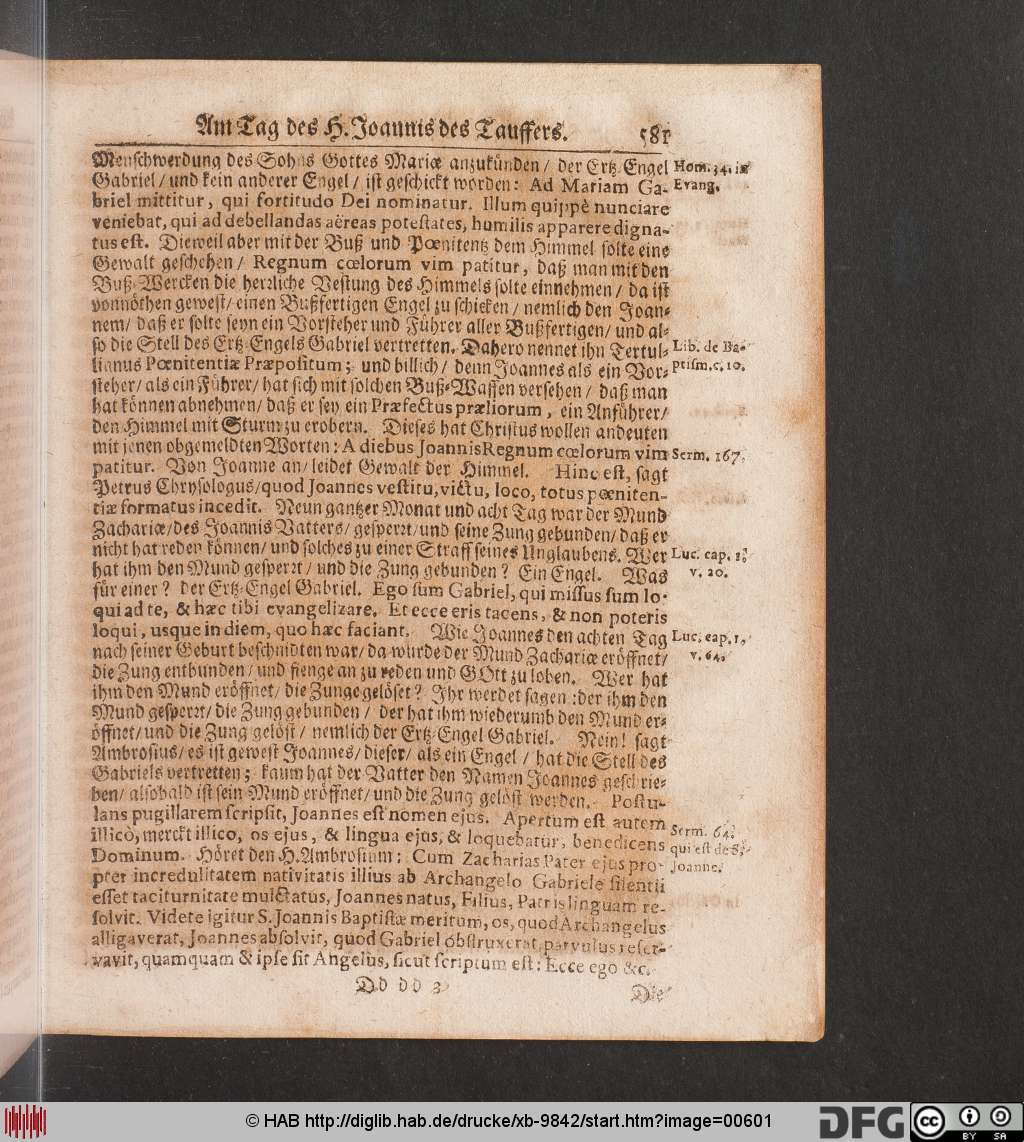 Am Tag des H. Joannis des Tauffers. 581
Menschwerdung des Sohns Gottes Mariæ anzukünden / der Ertz-Engel
Hom. 34. in
Gabriel / und kein anderer Engel / ist geschickt worden: Ad Mariam Ga-
Evang.
briel mittitur, qui fortitudo Dei nominatur. Illum quippè nunciare
veniebat, qui ad debellandas aëreas potestates, humilis apparere digna-
tus est. Dieweil aber mit der Buß und Pœnitentz dem Himmel solte eine
Gewalt geschehen / Regnum cœlorum vim patitur, daß man mit den
Buß-Wercken die herrliche Vestung des Himmels solte einnehmen / da ist
vonnöthen gewest / einen Bußfertigen Engel zu schicken / nemlich den Joan-
nem / daß er solte seyn ein Vorsteher und Führer aller Bußfertigen / und al-
so die Stell des Ertz-Engels Gabriel vertretten. Dahero nennet ihn Tertul-
Lib. de Ba-
lianus Pœnitentiæ Præpositum; und billich / denn Joannes als ein Vor-
ptism. c. 10.
steher / als ein Führer / hat sich mit solchen Buß-Waffen versehen / daß man
hat können abnehmen / daß er sey ein Præfectus præliorum, ein Anführer /
den Himmel mit Sturm zu erobern. Dieses hat Christus wollen andeuten
mit jenen obgemeldten Worten: A diebus Joannis Regnum cœlorum vim
Serm. 167.
patitur. Von Joanne an / leidet Gewalt der Himmel. Hinc est, sagt
Petrus Chrysologus / quod Joannes vestitu, victu, loco, totus pœniten-
tiæ formatus incedit. Neun gantzer Monat und acht Tag war der Mund
Zachariæ / des Joannis Vatters / gesperrt / und seine Zung gebunden / daß er
nicht hat reden können / und solches zu einer Straff seines Unglaubens. Wer
Luc. cap. 1.
hat ihm den Mund gesperrt / und die Zung gebunden? Ein Engel. Was
v. 20.
für einer? der Ertz-Engel Gabriel. Ego sum Gabriel, qui missus sum lo-
qui ad te, & hæc tibi evangelizare. Et ecce eris tacens, & non poteris
loqui, usque in diem, quo hæc faciant. Wie Joannes den achten Tag
Luc. cap. 1.
nach seiner Geburt beschnidten war / da wurde der Mund Zachariæ eröffnet /
v. 64.
die Zung entbunden / und fienge an zu reden und GOtt zu loben. Wer hat
ihm den Mund eröffnet / die Zunge gelöset? Ihr werdet sagen: der ihm den
Mund gesperrt / die Zung gebunden / der hat ihm wiederumb den Mund er-
öffnet / und die Zung gelöst / nemlich der Ertz-Engel Gabriel. Nein! sagt
Ambrosius / es ist gewest Joannes / dieser / als ein Engel / hat die Stell des
Gabriels vertretten; kaum hat der Vatter den Namen Joannes geschrie-
ben / alsobald ist sein Mund eröffnet / und die Zung gelöst werden. Postu-
lans pugillarem scripsit, Joannes est nomen ejus. Apertum est autem
illicò, merckt illico, os ejus, & lingua ejus, & loquebatur, benedicens
Serm. 64.
Dominum. Höret den H. Ambrosium: Cum Zacharias Pater ejus pro-
qui est de S.
Joanne.
pter incredulitatem nativitatis illius ab Archangelo Gabriele silentii
esset taciturnitate mulctatus, Joannes natus, Filius, Patris linguam re-
solvit. Videte igitur S. Joannis Baptistæ meritum, os, quod Archangelus
alligaverat, Joannes absolvit, quod Gabriel obstruxerat, parvulus reser-
vavit, quamquam & ipse sit Angelus, sicut scriptum est: Ecce ego &c.
Dd dd 3
Die
© HAB http://diglib.hab.de/drucke/xb-9842/start.htm?image=00601
DFG
cc
BY SA